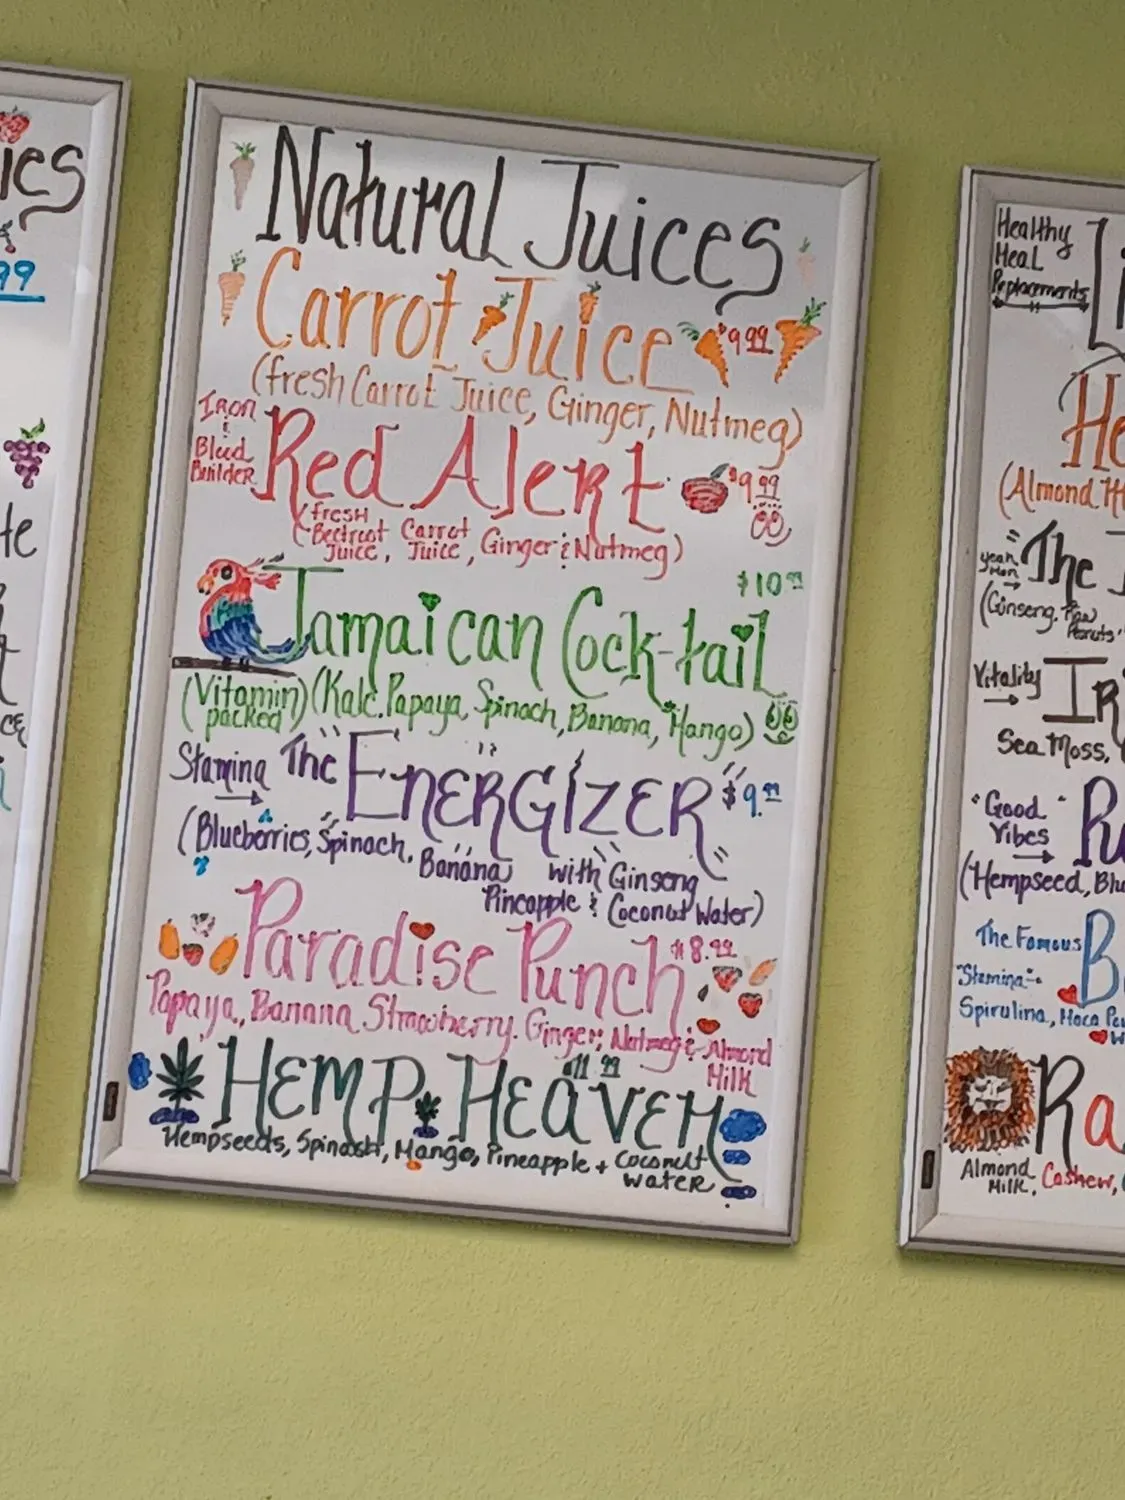 ies
99
te
CE
Natural Juices
Carrot Juice $9.99
(fresh Carrot Juice, Ginger, Nutmeg)
Iron
&
Blood
Builder
Red Alert $9.99
(fresh
Beetroot Carrot
Juice, Juice, Ginger & Nutmeg)
$10.99
Jamaican Cock-tail
(Vitamin packed) (Kale, Papaya, Spinach, Banana, Mango)
Stamina "The ENERGIZER" $9.99
(Blueberries, Spinach, Banana with Ginseng
Pineapple & Coconut Water)
Paradise Punch $8.99
Papaya, Banana, Strawberry, Ginger, Nutmeg & Almond
Milk
HEMP HEAVEN 11.99
Hempseeds, Spinach, Mango, Pineapple + Coconut
Water
Healthy
Meal
Replacements
He
(Almond
"yeah
Man
The
(Ginseng, Raw
Peanuts,
Vitality
Sea Moss,
"Good
Vibes
(Hempseed, Blu
The Famous B
"Stamina"
Spirulina, Maca
Ra
Almond
Milk, Cashew,